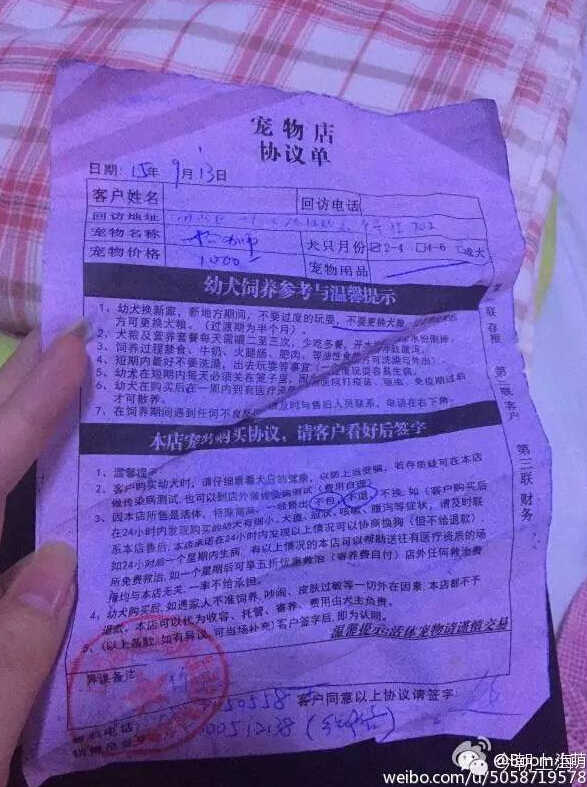 宠物店
协议单
日期: 15年 9月 13日
客户姓名
回访电话
回访地址 702
宠物名称
犬只月份 ☑2-4 □4-6 □成犬
宠物价格 1000
宠物用品
幼犬饲养参考与温馨提示
1、幼犬换新家,新地方期间,不要过度的玩耍,不要更换犬粮
方可更换犬粮。(过渡期为半个月)。
2、犬粮及营养套餐每天需喂二至三次,少吃多餐,开水
3、饲养过程禁食、牛奶、火腿肠、肥肉,等油性食
4、短期内最好不要洗澡,出去玩耍等事宜
5、幼犬在短期内每天必须关在笼子里,
6、幼犬在购买后在一周内到有医疗 医院打疫苗、驱虫、免疫期过后
才可散养。
7、在饲养期间遇到任何不良反 请及时与售后人员联系,电话在右下角。
本店宠物购买协议,请客户看好后签字
1、温馨提示
2、客户购买幼犬时,请仔细查看犬只的健康,以防上当受骗,若存质疑可在本店
做传染病测试,也可以到店外做传染病测试(费用自理)
3、因本店所售是活体,特殊商品,一经售出 不包 不退 不换,如(客户购买后
在24小时内发现购买的幼犬有细小、犬瘟、冠状、咳嗽、腹泻等症状,请及时联
系本店售后,本店承诺在24小时内发现以上情况可以协商换狗(但不给退款),
如24小时后一个星期内生病,有以上情况的本店可以帮助送往有医疗资质的场
所免费救治,如一个星期后可享五折优惠救治(寄养费自付)店外任何救治费
用均与本店无关,一率不给承担。
4、幼犬购买后,如遇家人不准饲养,吵闹、皮肤过敏等一切外在因素,本店都不予
退款,本店可以代为收容、托管、寄养、费用由犬主负责。
5、(以上条款,如有异议,可当场补充)客户签字后,即为认同。
温馨提示:活体宠物请谨慎交易
异议备注:
售后电话: 150558
客户同意以上协议请签字
销售员签名 100512138
一联存根
第二联客户
第三联财务
weibo.com/u/5058719578